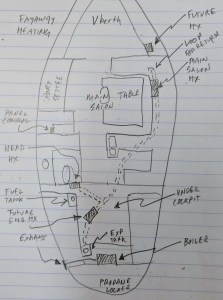 FUTURE
HX
HEATING
Vberth
LOOP
MAIN
SALON
HX
MAIN
SALON
TABLE
HEAD
HX
FUEL
TANK
UNDER
COCKPIT
FUTURE
ENG. HX
EXHAUST
EXP
TANK
BOILER
PROPANE
LOCKER